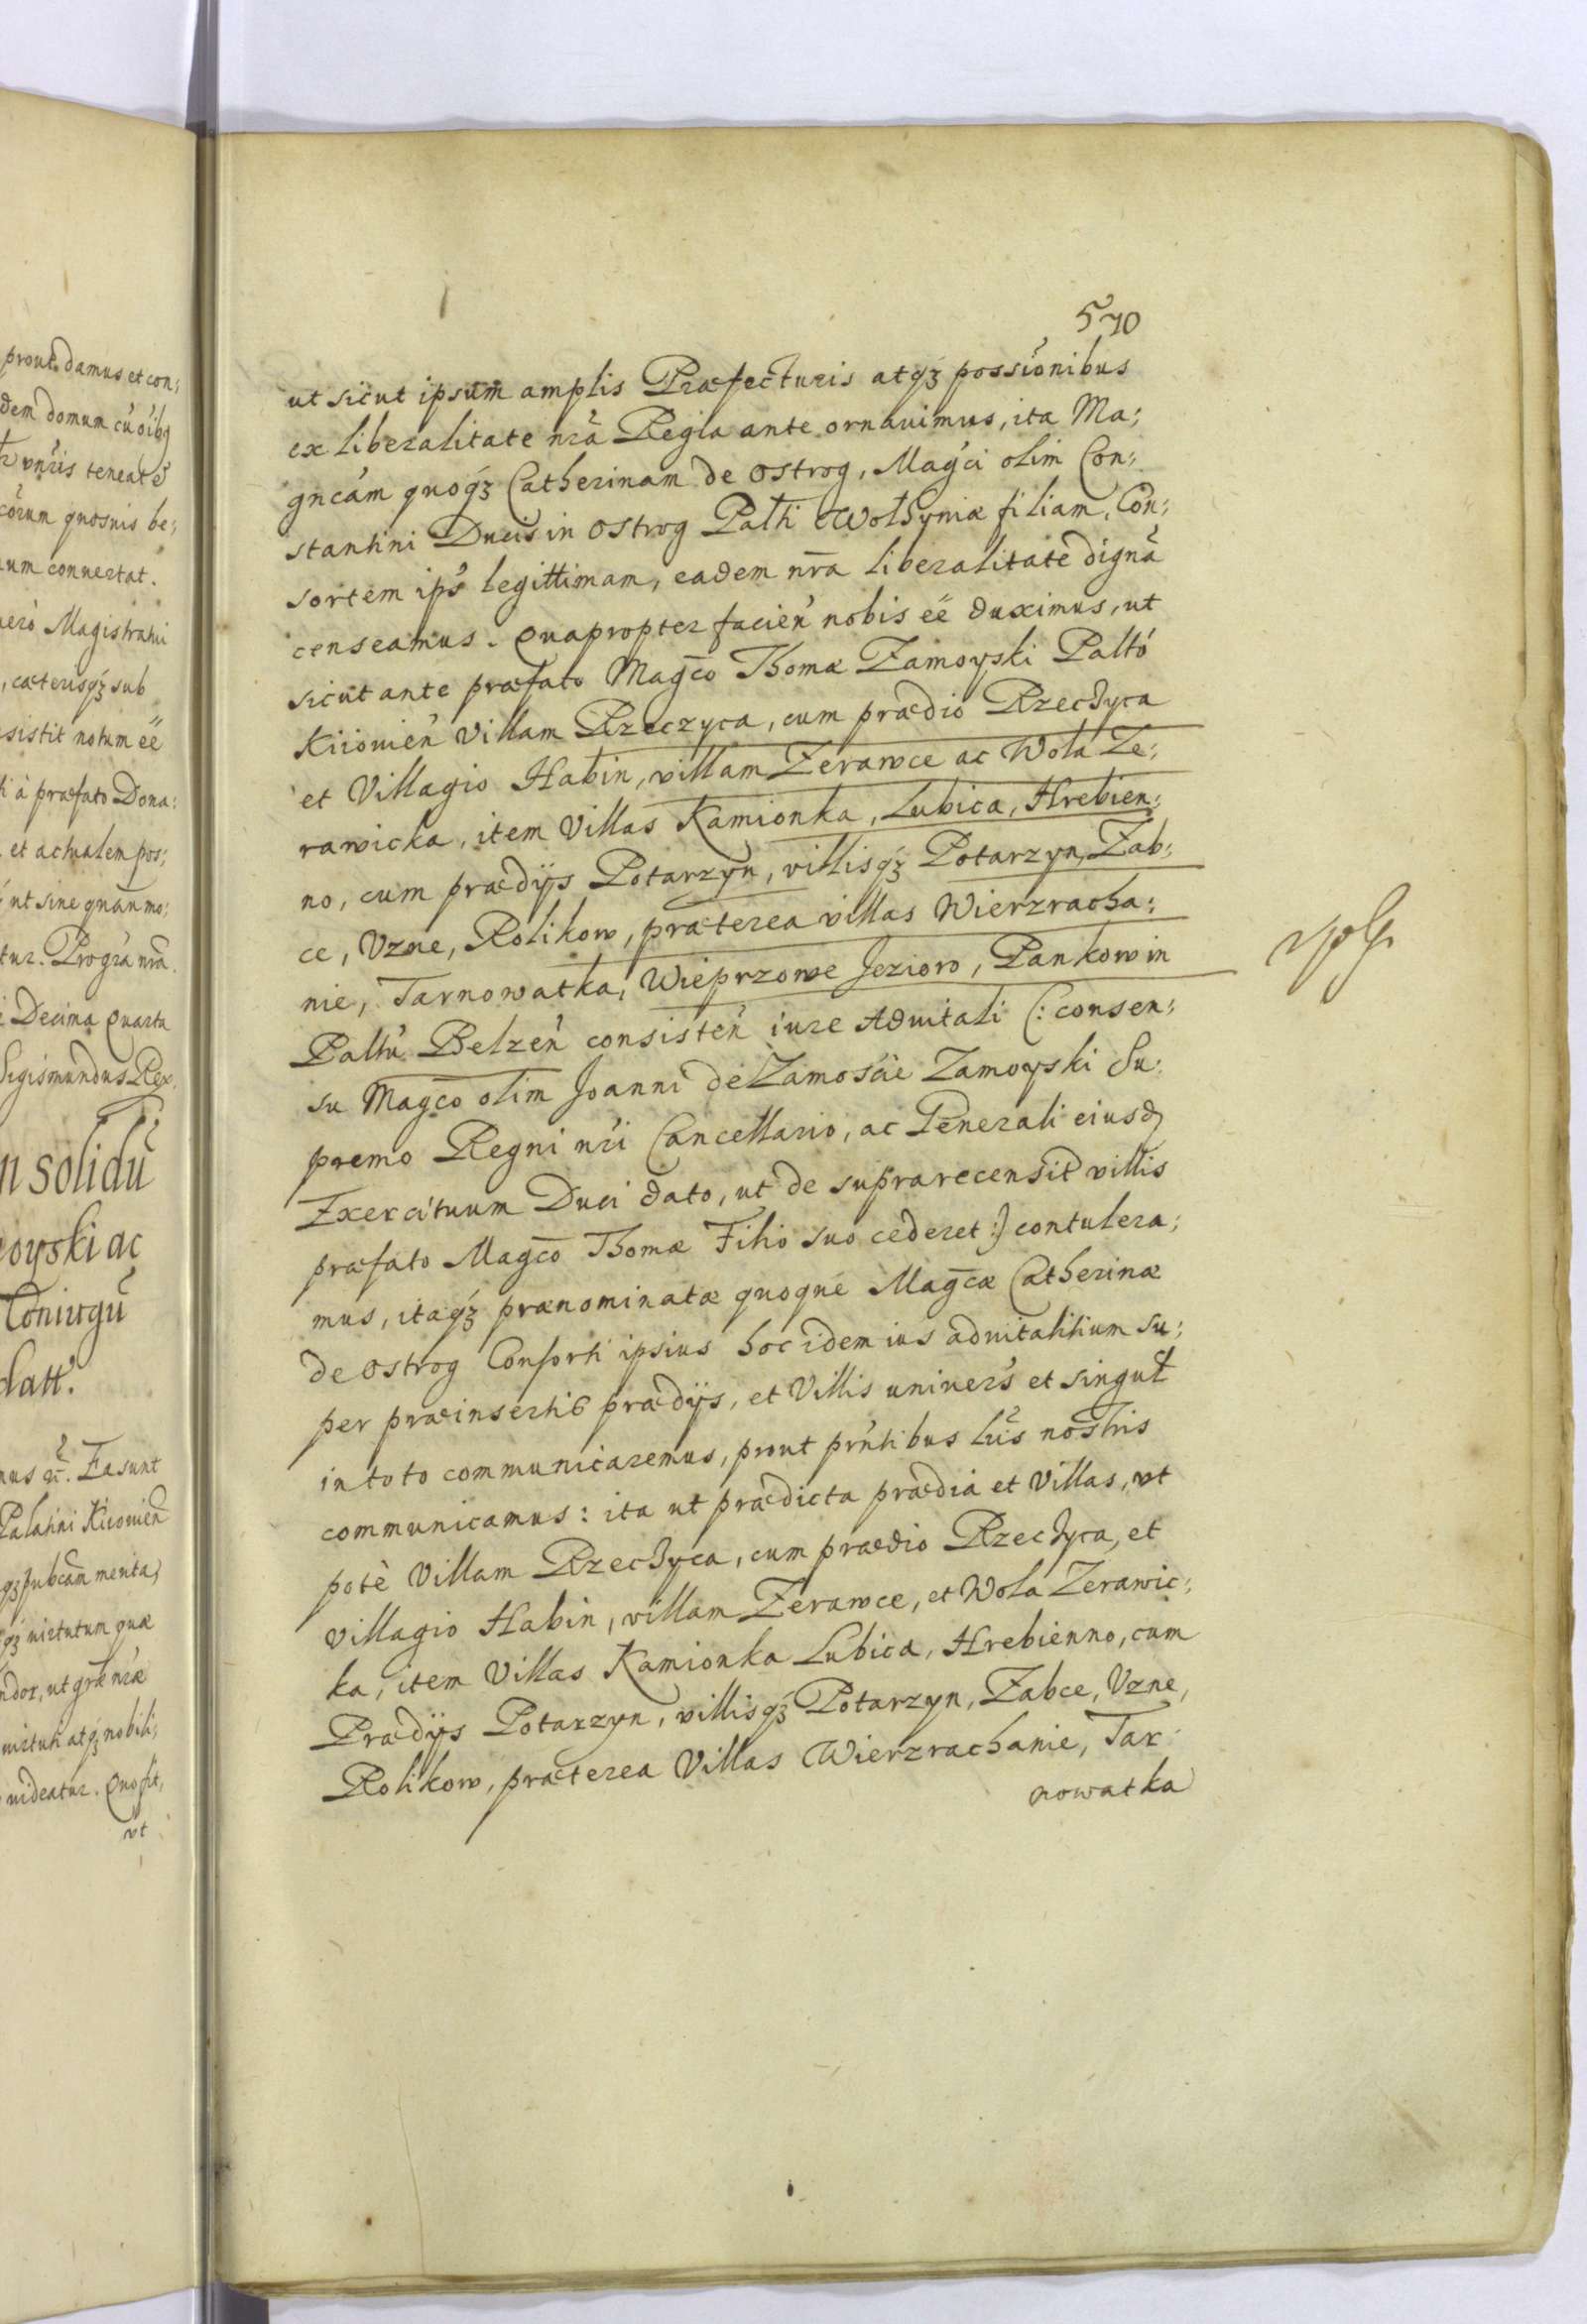 prout damus et con:
dem domum cũ oĩbq
unris teneate
quosuis be:
um conuertat.
uerò Magistratui
, cæterisqȝ sub
sistit notum eẽ
à præfato Dona:
et actualem pos:
ut sine quan mo:
tur. Progrã nrã
Decima Quarta
Sigismundus Rex.
n solidũ
oyski ac
Coniugũ
datt.
mus ec. Ea sunt
Palatini Kiiouien
merita,
qȝ uirtutum quæ
ndor, ut græ nræ
uirtuti atqȝ nobili:
uideatur. Quo fit,
vt
570
ut sicut ipsum amplis Præfecturis atqȝ possionibus
ex liberalitate nrã Regia ante ornauimus, ita Ma:
gncam quoqȝ Catherinam de Ostrog, Magci olim Con:
stantini Ducis in Ostrog Patti Wołhyniæ filiam, Con:
sortem ips legittimam, eadem nrã liberalitate dignã
censeamus. Quapropter facien nobis eẽ duximus, ut
sicut ante præfato Magco Thomæ Zamoyski Palto
Kiiouien Villam Rzeczyca, cum prædio Rzeczyca
et Villagio Habin, villam Zerawce ac Wola Ze:
rawicka, item Villas Kamionka, Lubica, Hrebien:
no, cum prædijs Potarzyn, villisqȝ Potarzyn, Zab:
ce, Vzne, Rolikow, præterea villas Wierzracha:
nie, Tarnowatka, Wieprzowe Jezioro, Pankow in
Paltu Belzen consisten iure Aduitali (: consen:
su Magco olim Joanni de Zamoscie Zamoyski Su:
premo Regni nri Cancellario, ac Generali eiusd
Exercituum Duci dato, ut de suprarecensit villis
præfato Magco Thomæ Filio suo cederet :) contulera:
mus, itaqȝ prænominatæ quoque Magcæ Catherinæ
de Ostrog Consorti ipsius hoc idem ius aduitalitium su:
per præinsertis prædijs, et Villis univers et singul
in toto communicaremus, prout prntibus lris nostris
communicamus: ita ut prædicta prædia et Villas, vt
potè Villam Rzeczyca, cum prædio Rzeczyca, et
villagio Habin, villam Zerawce, et Wola Zerawic:
ka, item Villas Kamionka Lubica, Hrebienno, cum
Prædijs Potarzyn, villisqȝ Potarzyn, Zabce, Vzne,
Rolikow, præterea Villas Wierzrachanie, Tar
nowatka